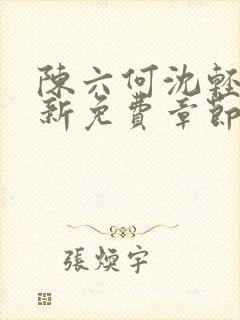 陳六何沈輕
新免費章節
張煐宇